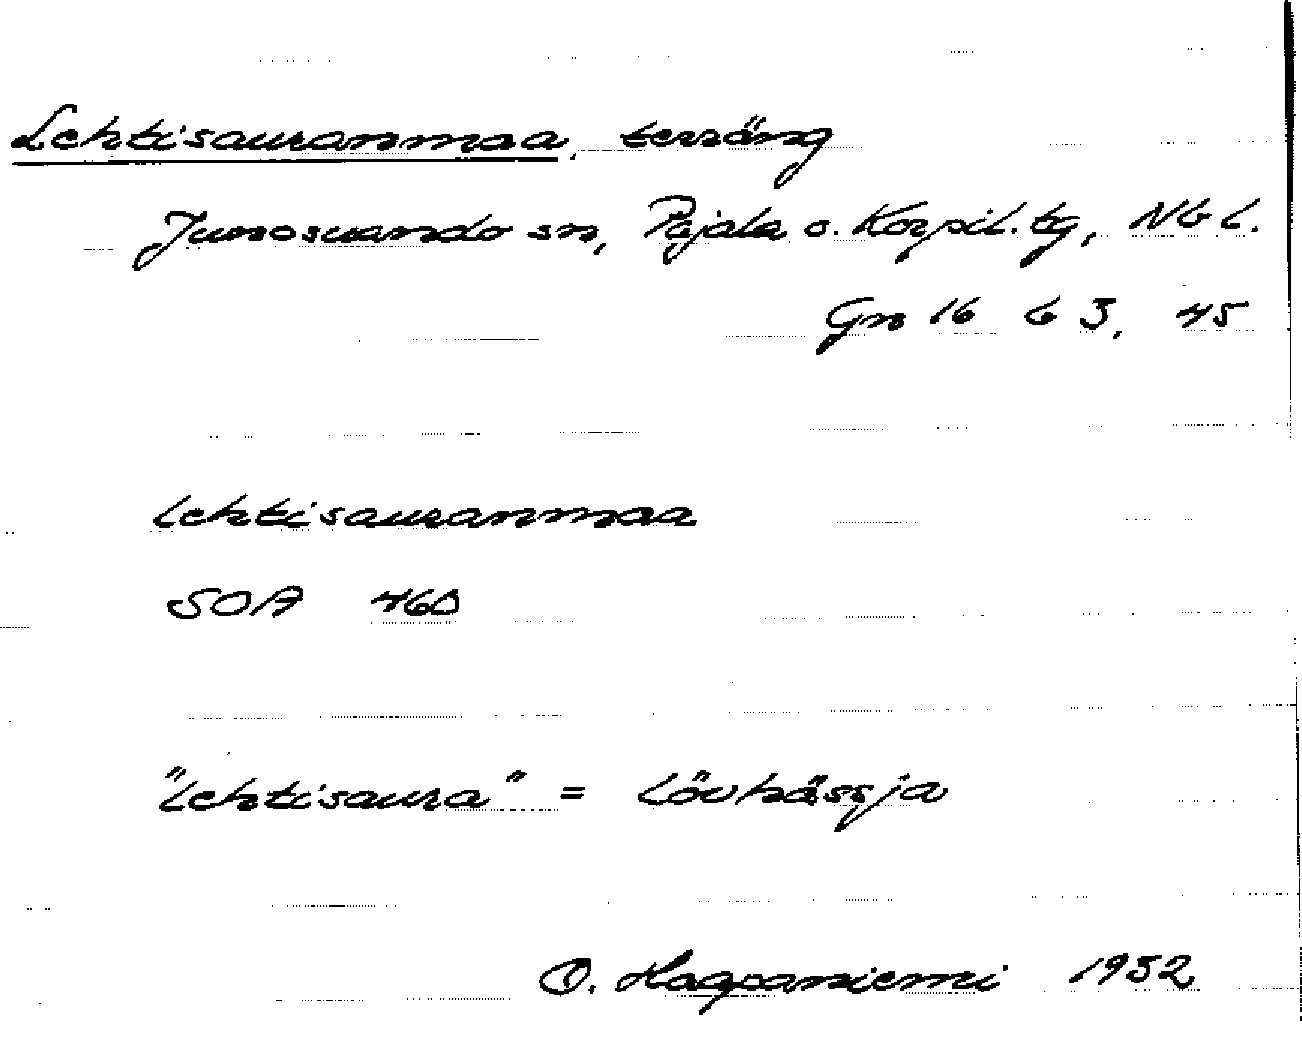 Lehtisauranmaa, terräng
Junosuando sn, Pajala o. Korpil. tg, Nb l.
Gn 16 b 3, 45
lehtisauranmaa
SOA 460
"lehtisaura" = lövhässja
O. Haapaniemi 1952